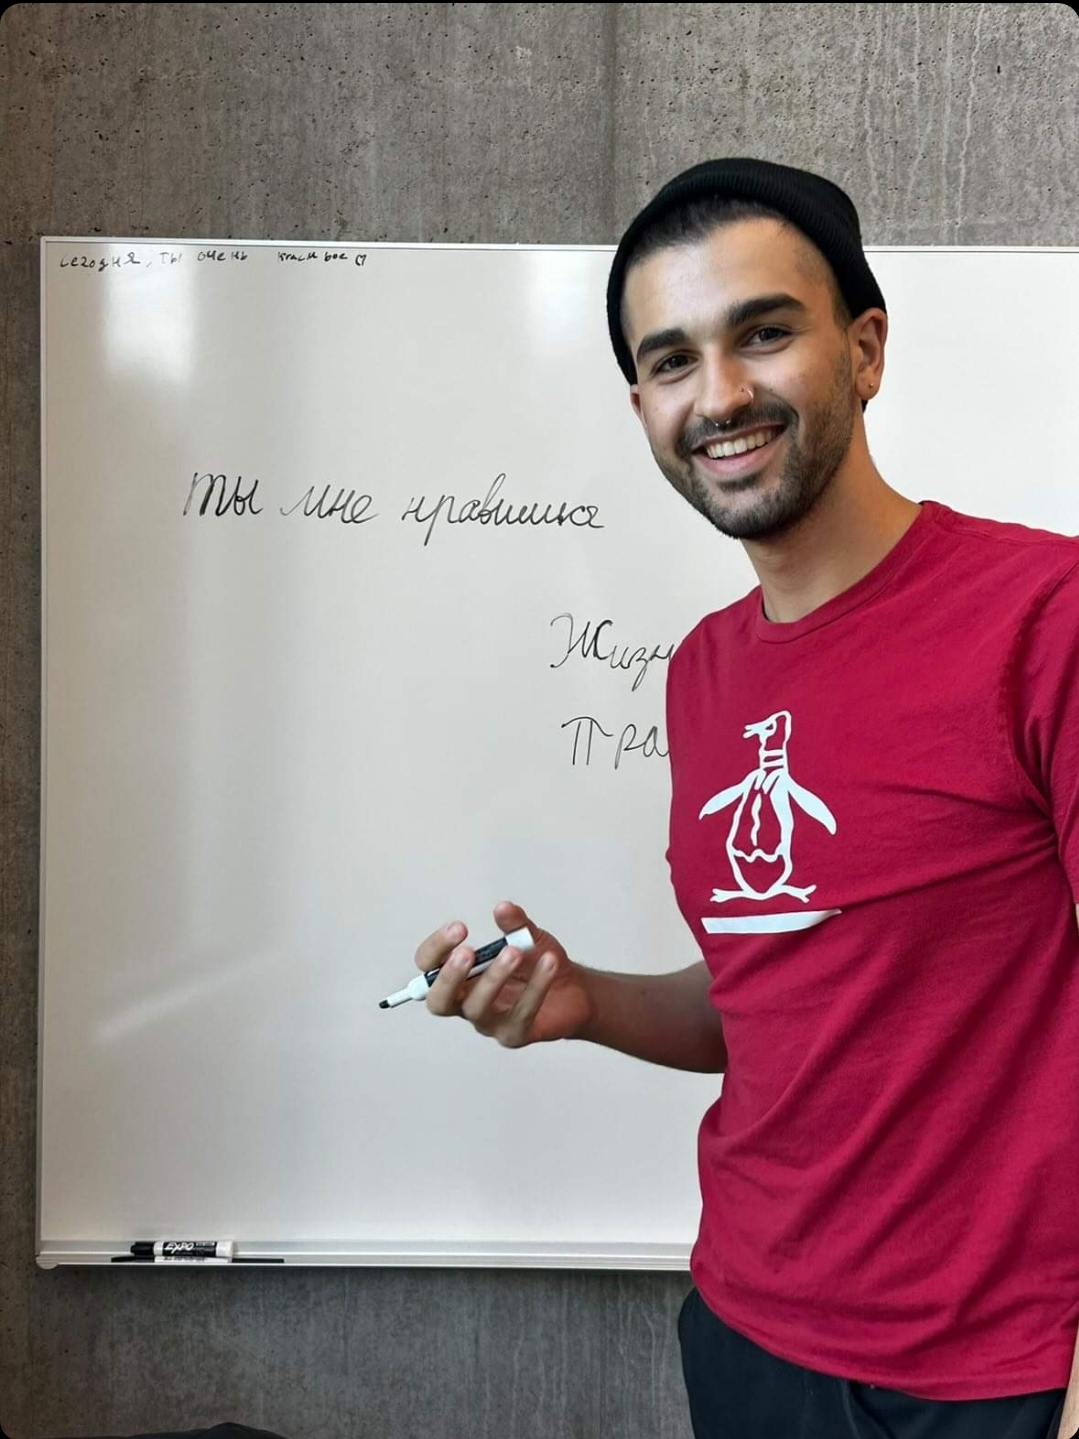 сегодня, ты очень красивое
ты мне нравишся
Жизн
Пра
EXPO